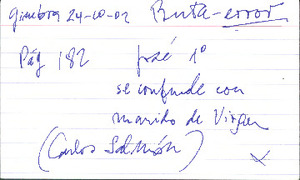 Ginebra 24-10-02 Ruta-error
Pág 182 José 1º
se confunde con
marido de Virgen
(Carlos Salmón)
X